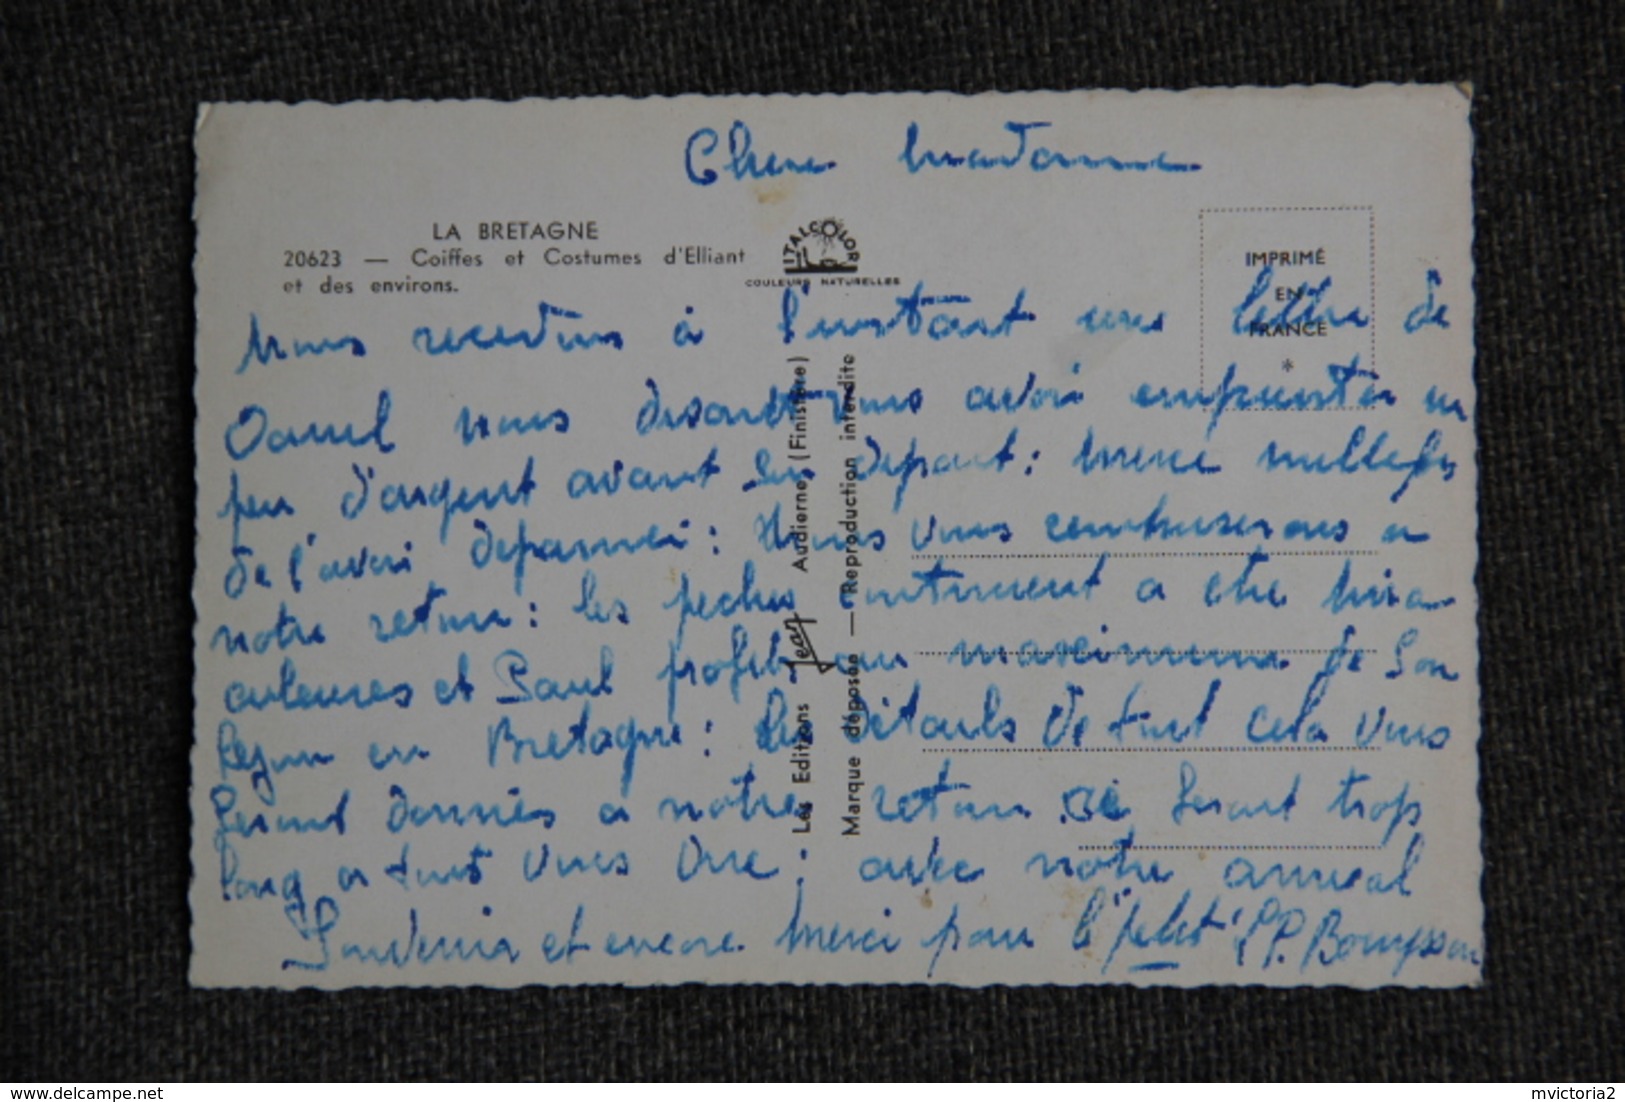 Chere Madame
LA BRETAGNE
20623 — Coiffes et Costumes d'Elliant
et des environs.
ITALCOLOR
COULEURS NATURELLES
IMPRIMÉ
EN
FRANCE
*
Nous recevons à l'instant une lettre de
nous disant vous avoir emprunter un
peu d'argent avant son depart: merci mille fois
de l'avoir depanner: Nous vous rembuserons a
notre retour: les peches continuent a etre mira
culeuses et Paul profite au maximum de Son
Sejour en Bretagne: les détails de tout cela vous
Seront donnés a notre retour. Ce Serait trop
long a tout vous dire: avec notre amical
Souvenir et encore merci pour l'"petit" P. Bouysson
Les Editions Jean Audierne (Finistère)
Marque déposée — Reproduction interdite
delcampe.net
mvictoria2